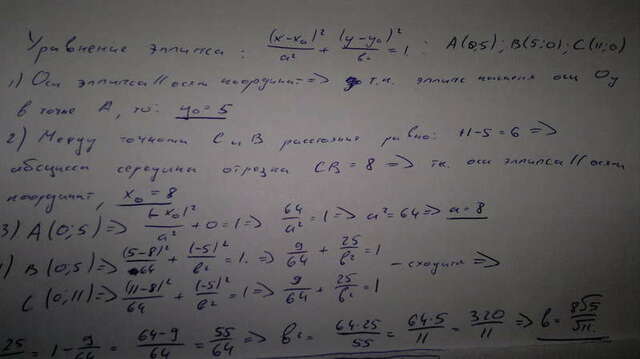 Уравнение эллипса: (x-x₀)²/a² + (y-y₀)²/b² = 1 : A(0;5); B(5;0); C(11;0)
1) Оси эллипса || осям координат => т.к. эллипс касается оси Oy
в точке A, то: y₀ = 5
2) Между точками C и B расстояние равно: 11-5=6 =>
абсцисса середины отрезка CB = 8 => т.к. оси эллипса || осям
координат, x₀ = 8
3) A(0;5) => (-x₀)²/a² + 0 = 1 => 64/a² = 1 => a² = 64 => a = 8
) B(0;5) => (5-8)²/64 + (-5)²/b² = 1 => 9/64 + 25/b² = 1
C(0;11) => (11-8)²/64 + (-5)²/b² = 1 => 9/64 + 25/b² = 1 - сходится =>
25/ = 1 - 9/64 = 64-9/64 = 55/64 => b² = 64·25/55 = 64·5/11 = 320/11 => b = 8√5/√11.